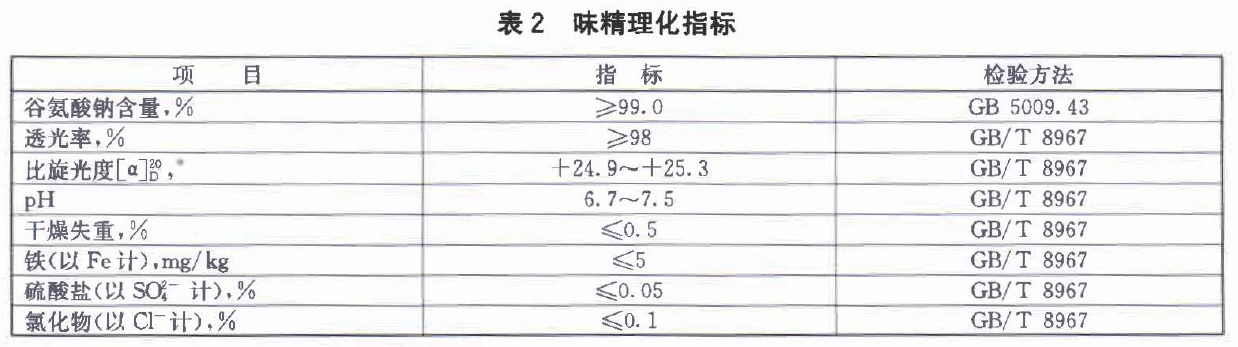 表2 味精理化指标
项 目 指 标 检验方法
谷氨酸钠含量,% ≥99.0 GB 5009.43
透光率,% ≥98 GB/T 8967
比旋光度[α]²⁰_D,° +24.9~+25.3 GB/T 8967
pH 6.7~7.5 GB/T 8967
干燥失重,% ≤0.5 GB/T 8967
铁(以Fe计),mg/kg ≤5 GB/T 8967
硫酸盐(以SO₄²⁻计),% ≤0.05 GB/T 8967
氯化物(以Cl⁻计),% ≤0.1 GB/T 8967